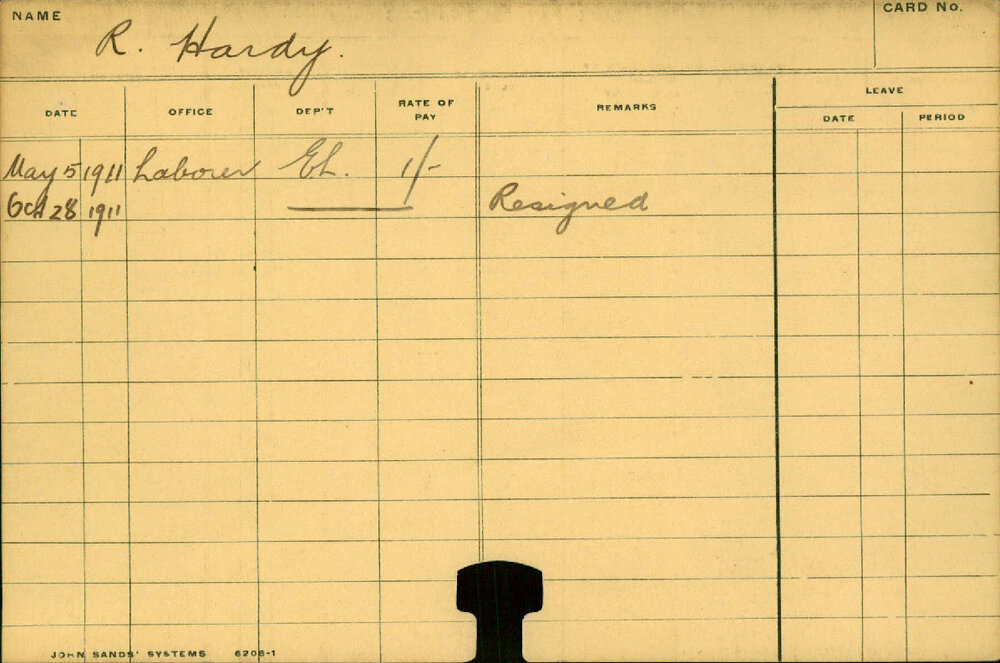 NAME R. Hardy. CARD No.
DATE OFFICE DEP'T RATE OF PAY REMARKS LEAVE
DATE PERIOD
May 5 1911 Laborer EL. 1/-
Oct 28 1911 Resigned
JOHN SANDS' SYSTEMS 6206-1